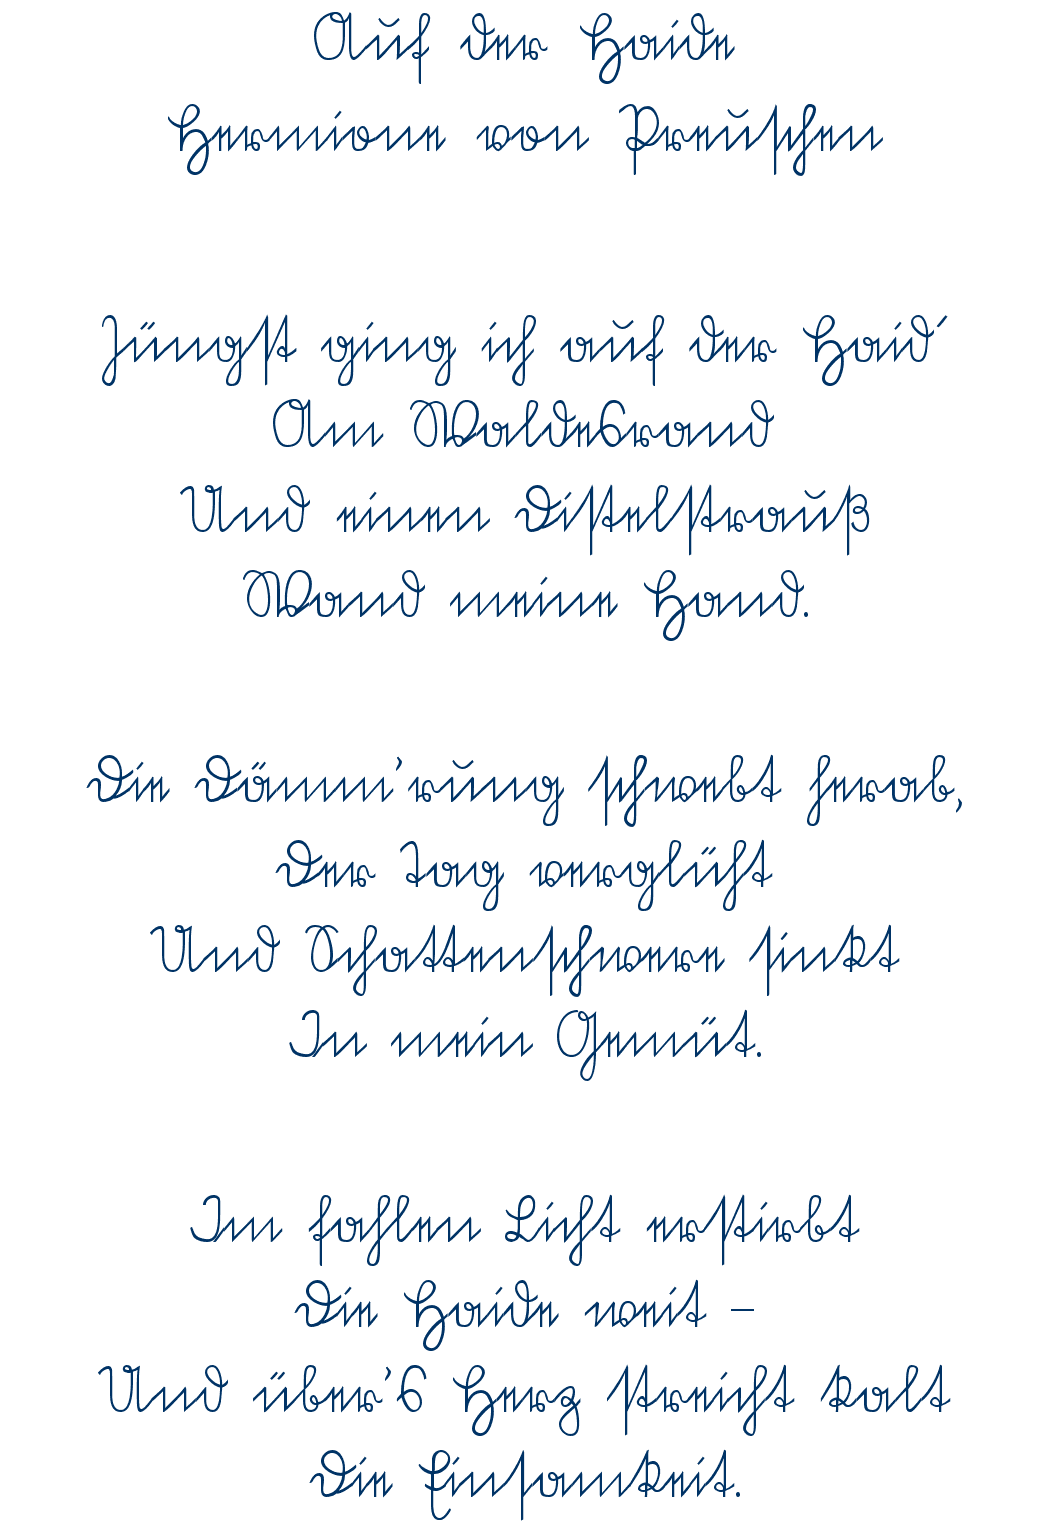 Auf der Haide
Hermione von Preuschen
Jüngst ging ich auf der Haid´
Am Waldesrand
Und einen Distelstrauß
Wand meine Hand.
Die Dämm'rung schwebt herab,
Der Tag verglüht
Und Schattenschwere sinkt
In mein Gemüt.
Im fahlen Licht erstirbt
Die Haide weit –
Und über's Herz streicht kalt
Die Einsamkeit.